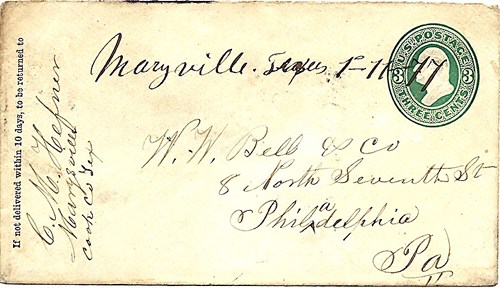 If not delivered within 10 days, to be returned to
C. M. Hefner
Marysville
Cook Co Tex
Maryville. Texas 1-11-77
U.S. POSTAGE
3 3
THREE CENTS
W. W. Bell & Co
8 North Seventh St
Philadelphia,
Pa